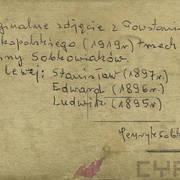 ginalne zdjęcie z Powstania
kopolskiego (1919r) trzech
ny Sobkowiaków.
lewej: Stanisław (1897r)
Edward (1896r)
Ludwik (1895r)
Henryk Sobk
CYR